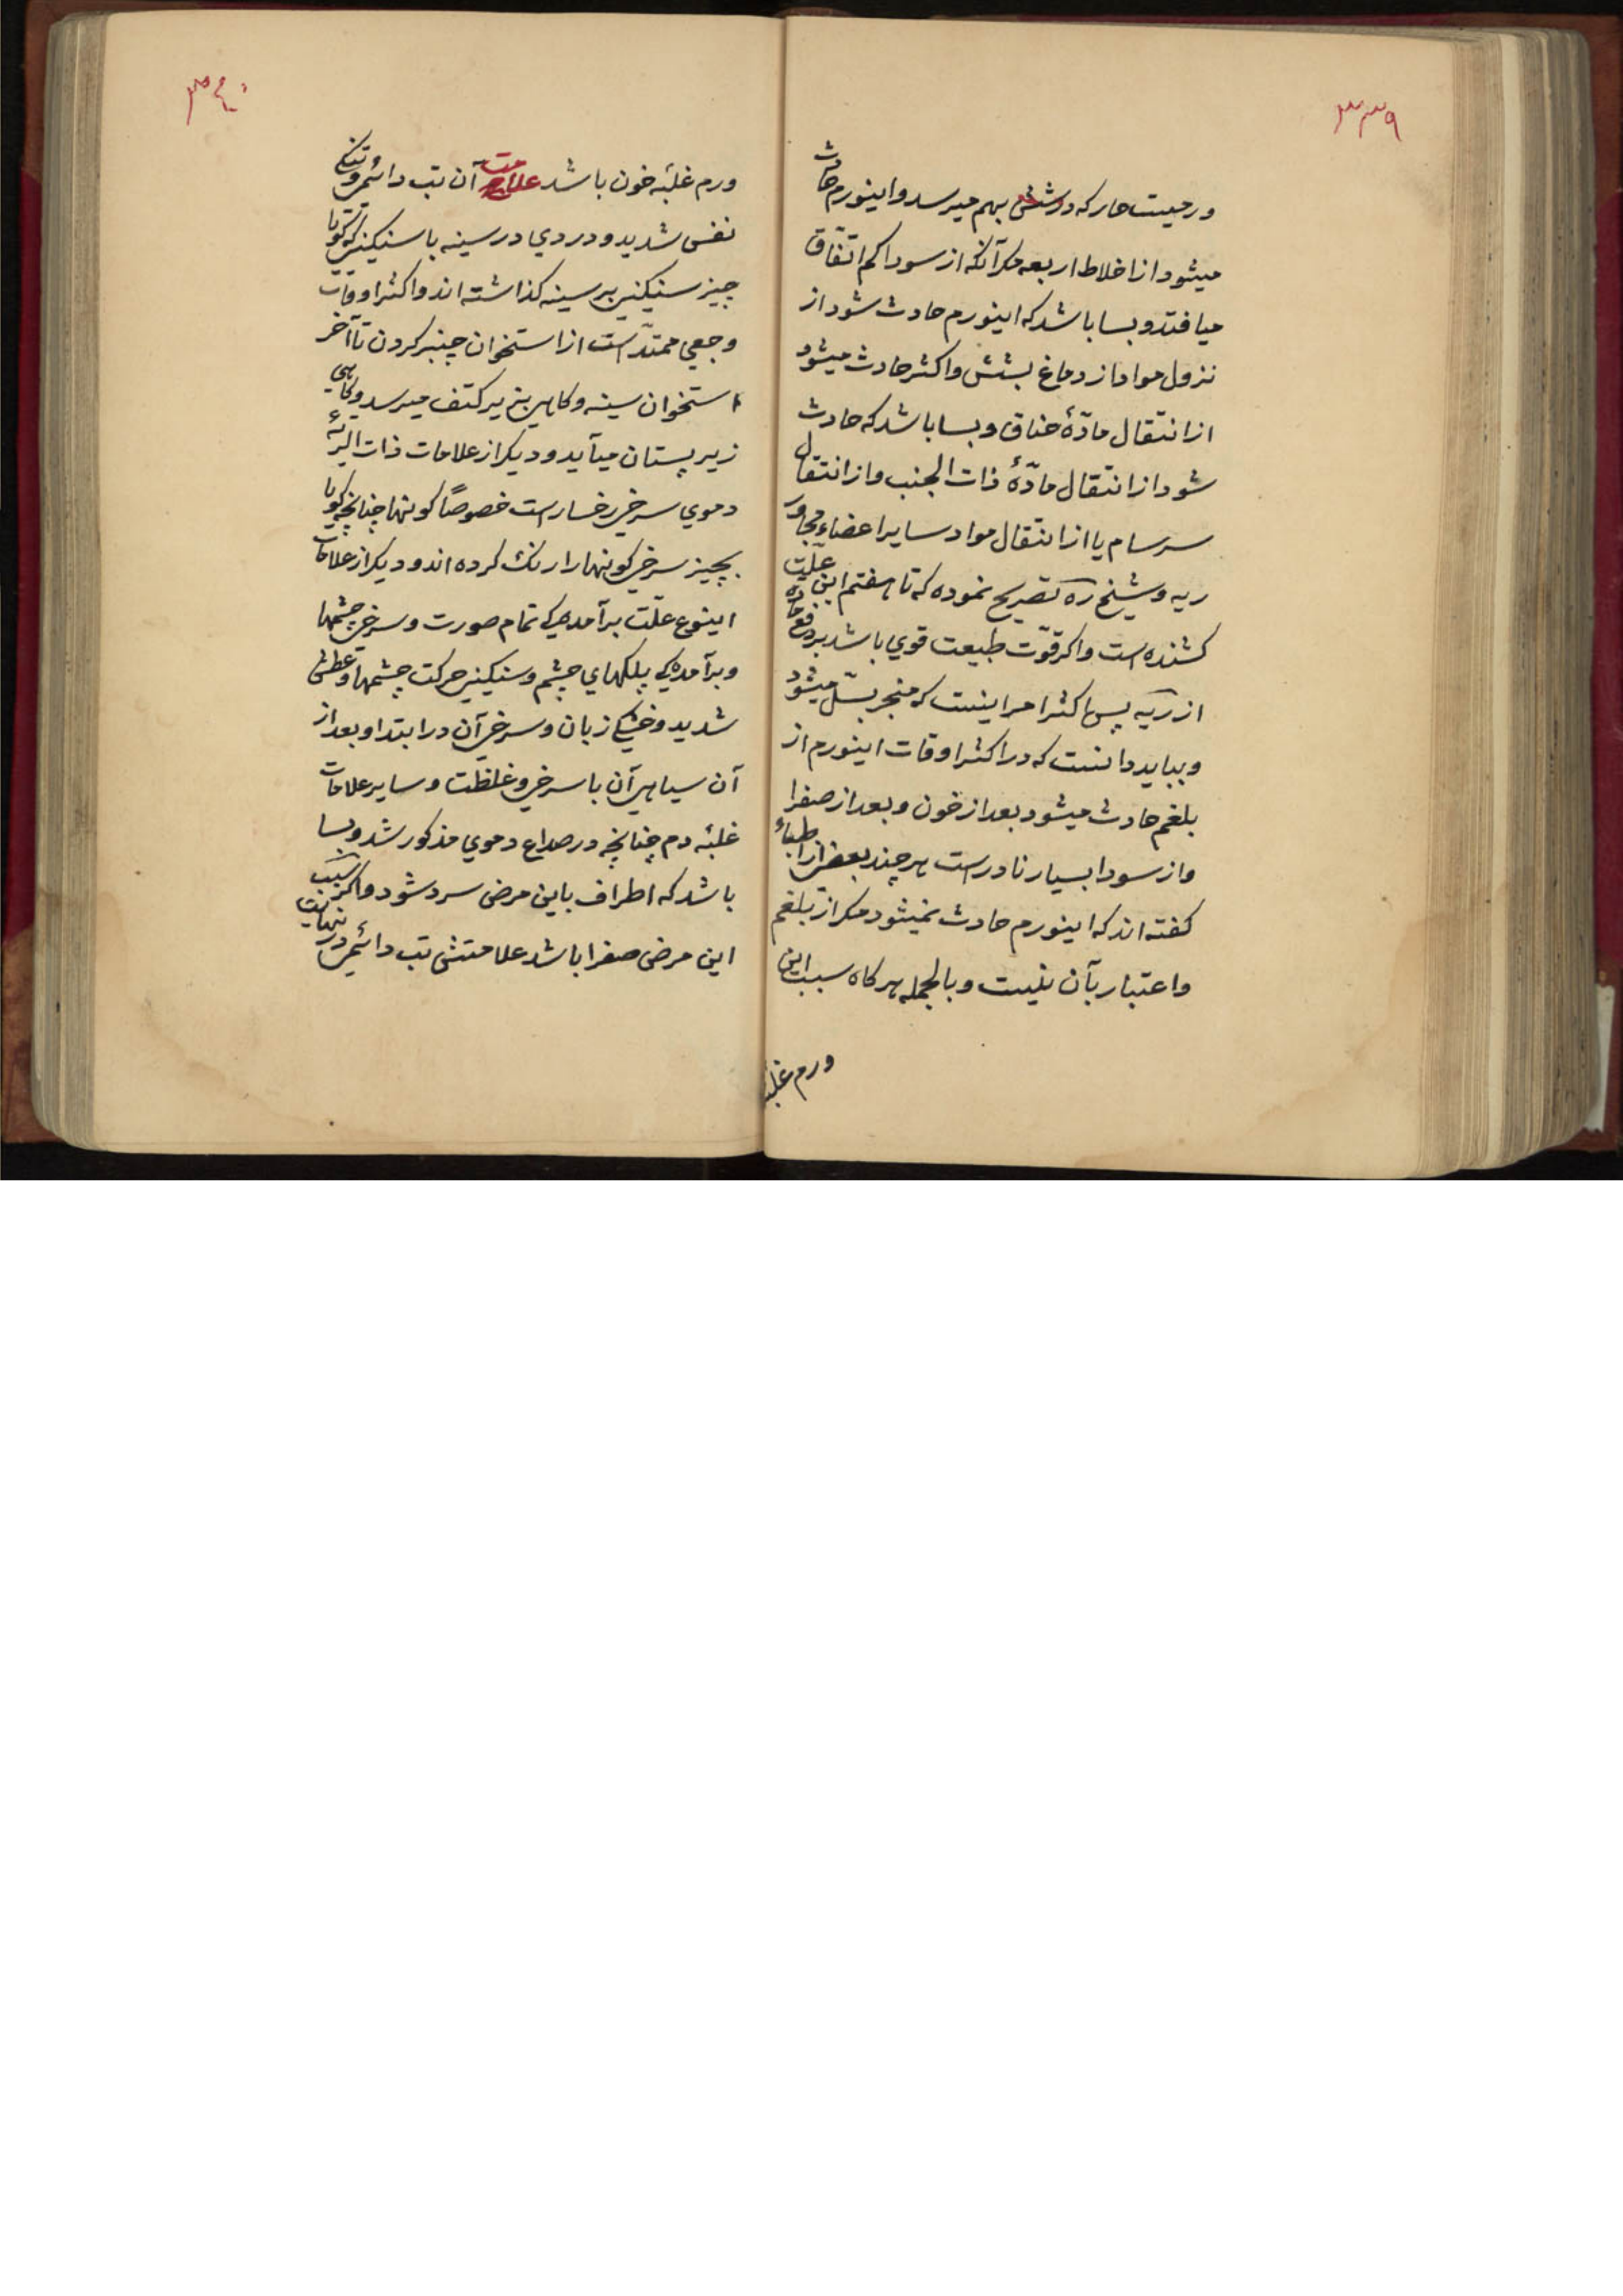 ۳۳۹
ورمیست حار که در شش بهم میرسد و اینورم حادث
میشود از اخلاط اربعه مکر آنکه از سودا کم اتّفاق
میافتد و بسا باشد که اینورم حادث شود از
نزول مواد از دماغ بشش و اکثر حادث میشود
از انتقال مادّۀ خناق و بسا باشد که حادث
شود از انتقال مادّۀ ذات الجنب و از انتقال
سرسام یا از انتقال مواد سایر اعضاء مجاور
ریه و شیخ ره تصریح نموده که تا هفتم این علّت
کشنده است و اکر قوّت طبیعت قوي باشد بر دفع مادّه
از ریه پس اکثر امر اینست که منجر بسّل میشود
و بباید دانست که در اکثر اوقات اینورم از
بلغم حادث میشود بعد از خون و بعد از صفرا
و از سودا بسیار نادر است هر چند بعضی از اطباء
کفته اند که اینورم حادث نمیشود مکر از بلغم
و اعتبار بآن نیست و بالجمله هر کاه سبب این
ورم غلبۀ
۳۴۰
ورم غلبۀ خون باشد علامت آن تب دائمی و تنکی
نفس شدید و دردي در سینه با سنکینی که کویا
چیز سنکینی بر سینه کذاشته اند و اکثر اوقات
وجعی ممتدّ است از استخوان چنبر کردن تا آخر
استخوان سینه و کاهی بزیر کتف میرسد و کاهی
زیر پستان میآید و دیکر از علامات ذات الریۀ
دموي سرخی رخسار است خصوصًا کونها چنانچه کویا
بچیز سرخی کونها را رنک کرده اند و دیکر از علامات
اینوع علّت برآمدکی تمام صورت و سرخی چشمها
و برآمدکی پلکهاي چشم و سنکینی حرکت چشمها و عطش
شدید و خشکی زبان و سرخی آن در ابتدا و بعد از
آن سیاهی آن با سرخی و غلظت و سایر علامات
غلبۀ دم چنانچه در صداع دموي مذکور شد و بسا
باشد که اطراف باین مرض سرد شود و اکر سبب
این مرض صفرا باشد علامتش تب دائمی در نهایت